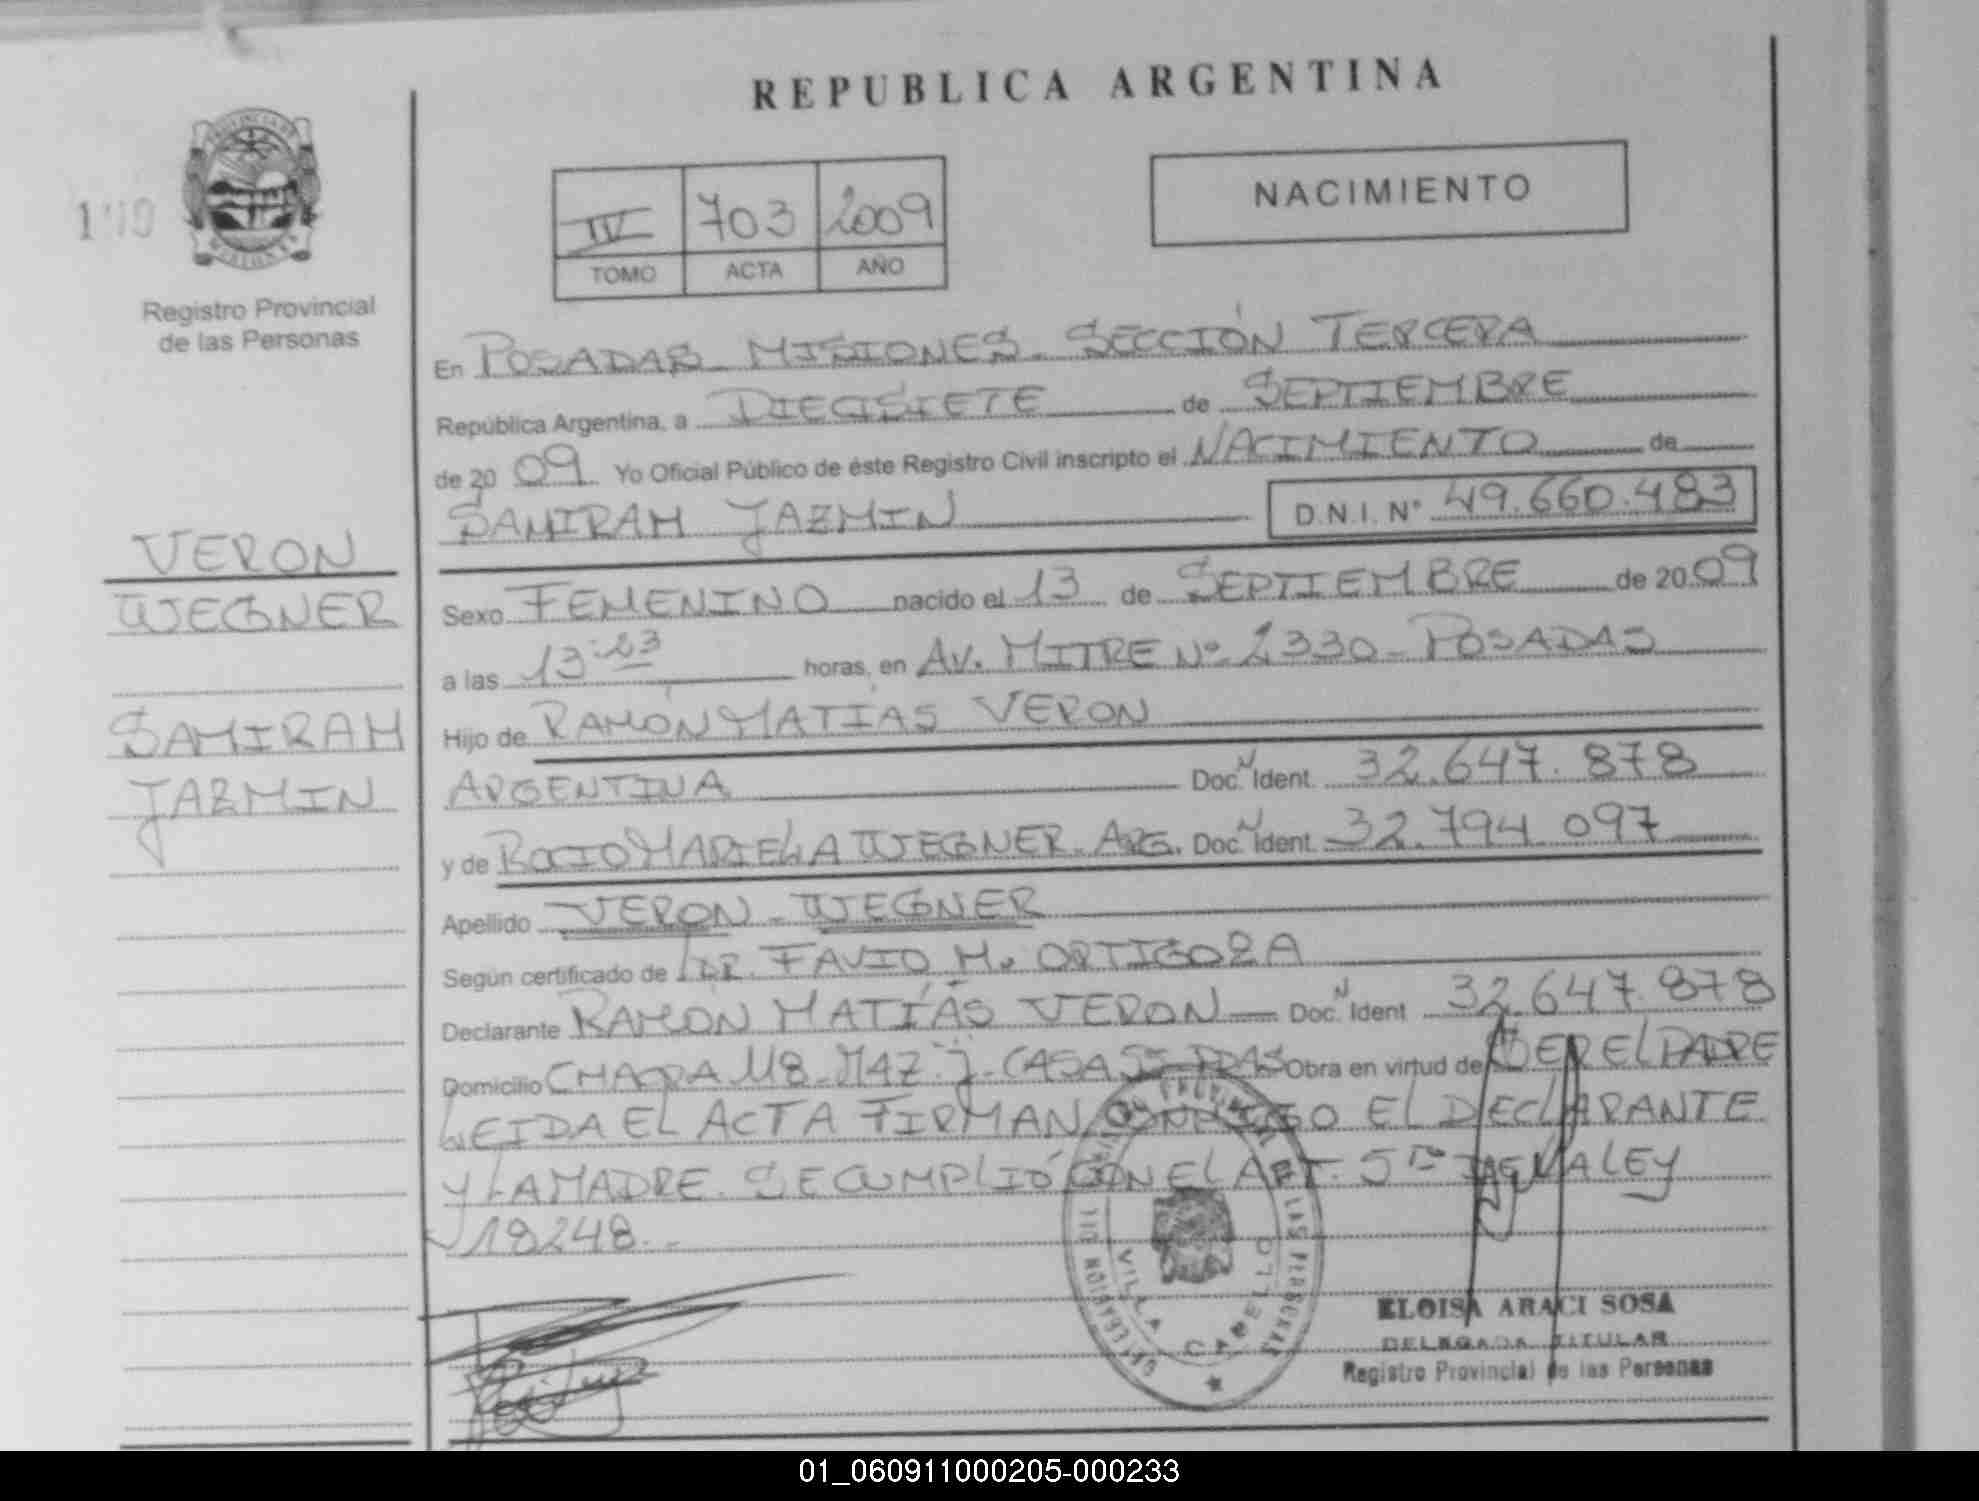 REPUBLICA ARGENTINA
NACIMIENTO
IV 703 2009
TOMO ACTA AÑO
Registro Provincial
de las Personas
En POSADAS MISIONES - SECCIÓN TERCERA
República Argentina, a DIECISIETE de SEPTIEMBRE
de 2009 Yo Oficial Público de éste Registro Civil inscripto el NACIMIENTO de
SAMIRAM JAZMIN D.N.I. Nº 49.660.483
VERON
WEGNER
SAMIRAM
JAZMIN
Sexo FEMENINO nacido el 13 de SEPTIEMBRE de 2009
a las 13:23 horas, en AV. MITRE Nº 2330 - POSADAS
Hijo de RAMÓN MATÍAS VERON
ARGENTINA Doc. N Ident. 32.647.878
y de ROCIO MARIELA WEGNER - ARG. Doc. N Ident. 32.794.097
Apellido VERON - WEGNER
Según certificado de DR. FAVIO M. ORTIGOZA
Declarante RAMÓN MATÍAS VERON Doc. N Ident 32.647.878
Domicilio CHACRA 118 - MAZ. J - CASA PDAS Obra en virtud de SER EL PADRE
LEIDA EL ACTA FIRMAN CONMIGO EL DECLARANTE
Y LA MADRE. SE CUMPLIÓ CON EL ART. 5to DE LA LEY
18248.-
DELEGACION DEL REGISTRO PROVINCIAL DE LAS PERSONAS
VILLA CABELLO
ELOISA ARACI SOSA
DELEGADA TITULAR
Registro Provincial de las Personas
01_060911000205-000233